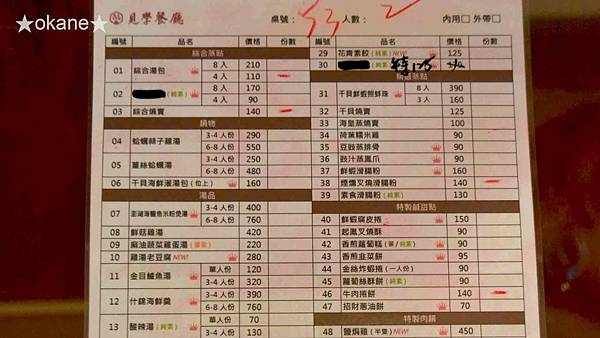 ★okane★
見學餐廳 桌號: 53 人數: 2 內用□ 外帶□
編號 品名 價格 份數
綜合蒸點
01 綜合湯包 8入 210
4入 110
02 (純素) 8入 170
4入 90
03 綜合燒賣 140
鍋物
04 蛤蠣絲子雞湯 3-4人份 290
6-8人份 550
05 薑絲蛤蠣湯 3-4人份 250
6-8人份 480
06 干貝海鮮灌湯包(位上) 160
湯品
07 澎湖海鱺魚米粉煲湯 3-4人份 400
6-8人份 760
08 鮮菇雞湯 420
09 麻油蔬菜雞蛋湯 220
10 雞湯老豆腐 NEW! 280
11 金目鱸魚湯 單人份 120
3-4人份 320
12 什錦海鮮羹 3-4人份 390
6-8人份 760
13 酸辣湯(純素) 單人份 70
3-4人份 130
29 花膏素餃(純素) NEW! 125
30
編號 品名 價格 份數
31 干貝鮮蝦煎蚌珠 8入 390
3入 160
32 干貝燒賣 125
33 海皇蒸燒賣 100
34 荷葉糯米雞 90
35 豆豉蒸排骨 90
36 豉汁蒸鳳爪 90
37 鮮蝦滑腸粉 130
38 煙燻叉燒滑腸粉 130
39 素食滑腸粉(純素) 130
特製鹹甜點
40 鮮蝦腐皮捲 150
41 起鳳叉燒酥 90
42 香煎蘿蔔糕(葷/純素) 90
43 香煎韭菜餅 95
44 金絲炸蝦捲(一人份) 90
45 蘿蔔絲酥餅(純素) 90
46 牛肉捲餅 140
47 招財蔥油餅 70
特製肉鍋
48 鹽焗雞(半隻) NEW! 450